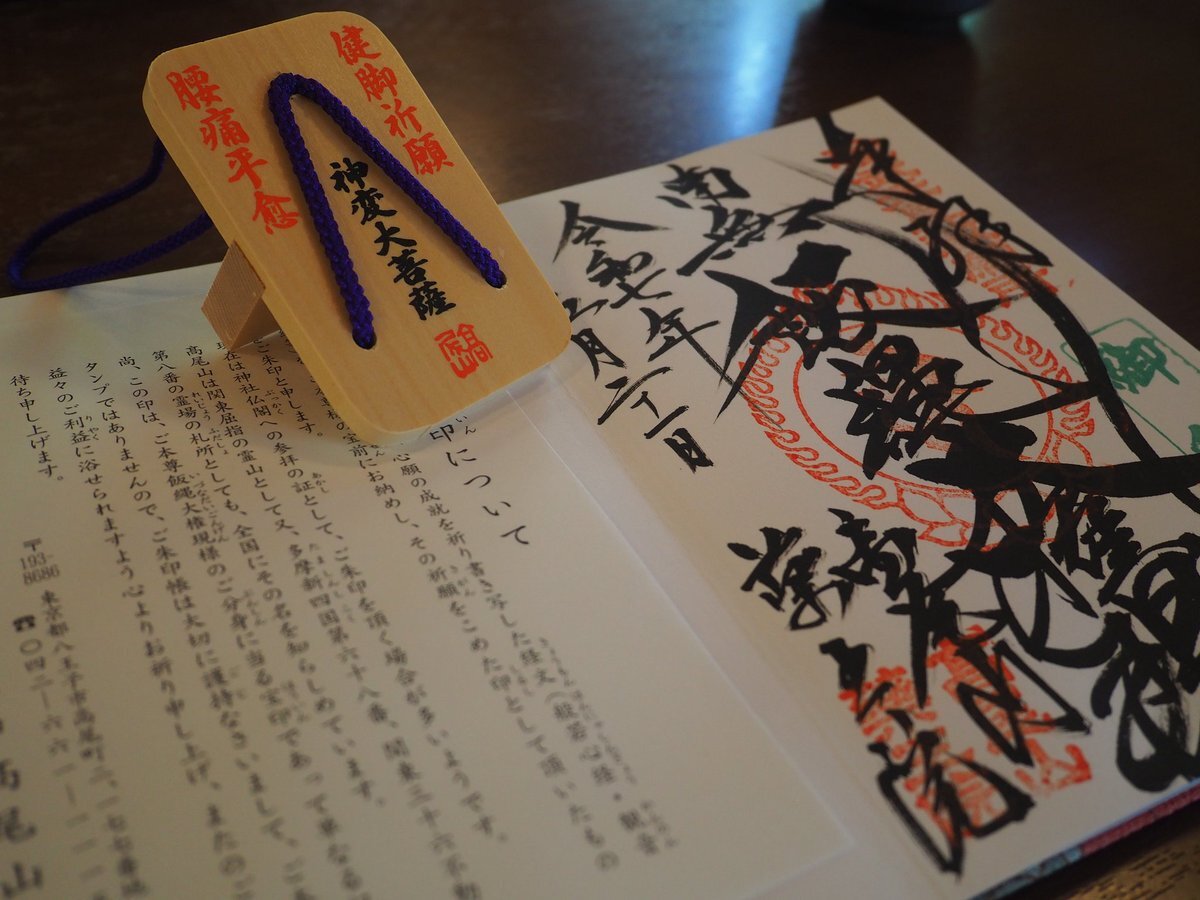 健脚祈願
神変大菩薩
腰痛平愈
高尾山
南無
飯縄大権現
令和七年
二十一日
薬王院
印について
心願の成就を祈り書き写した経文（般若心経・観音
宝前にお納めし、その祈願をこめた印として頂いたもの
ご朱印と申します。
在は神社仏閣への参拝の証として、ご朱印を頂く場合が多いようです。
高尾山は関東屈指の霊山として又、多摩新四国第六十八番、関東三十六不動
第八番の霊場の札所としても、全国にその名を知らしめています。
尚、この印は、ご本尊飯縄大権現様のご分身に当る宝印であって単なる
タンプではありませんので、ご朱印帳は大切に護持なさいまして、ご
益々のご利益に浴せられますよう心よりお祈り申し上げ、またのご
待ち申し上げます。
〒193-8686 東京都八王子市高尾町二、一七七番地
☎〇四二ー六六一ー一一一
高尾山